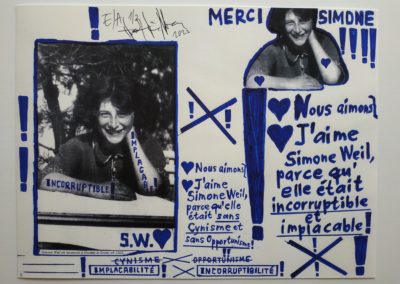 E/A 1/3
2023
MERCI SIMONE
INCORRUPTIBLE!
IMPLACABLE
S.W.
Nous aimons}
J'aime
Simone Weil,
parce qu'elle
était sans
Cynisme et
sans Opportunisme!
Nous aimons}
J'aime
Simone Weil,
parce qu'
elle était
incorruptible
et
implacable!
CYNISME OPPORTUNISME
IMPLACABILITÉ! INCORRUPTIBILITÉ!